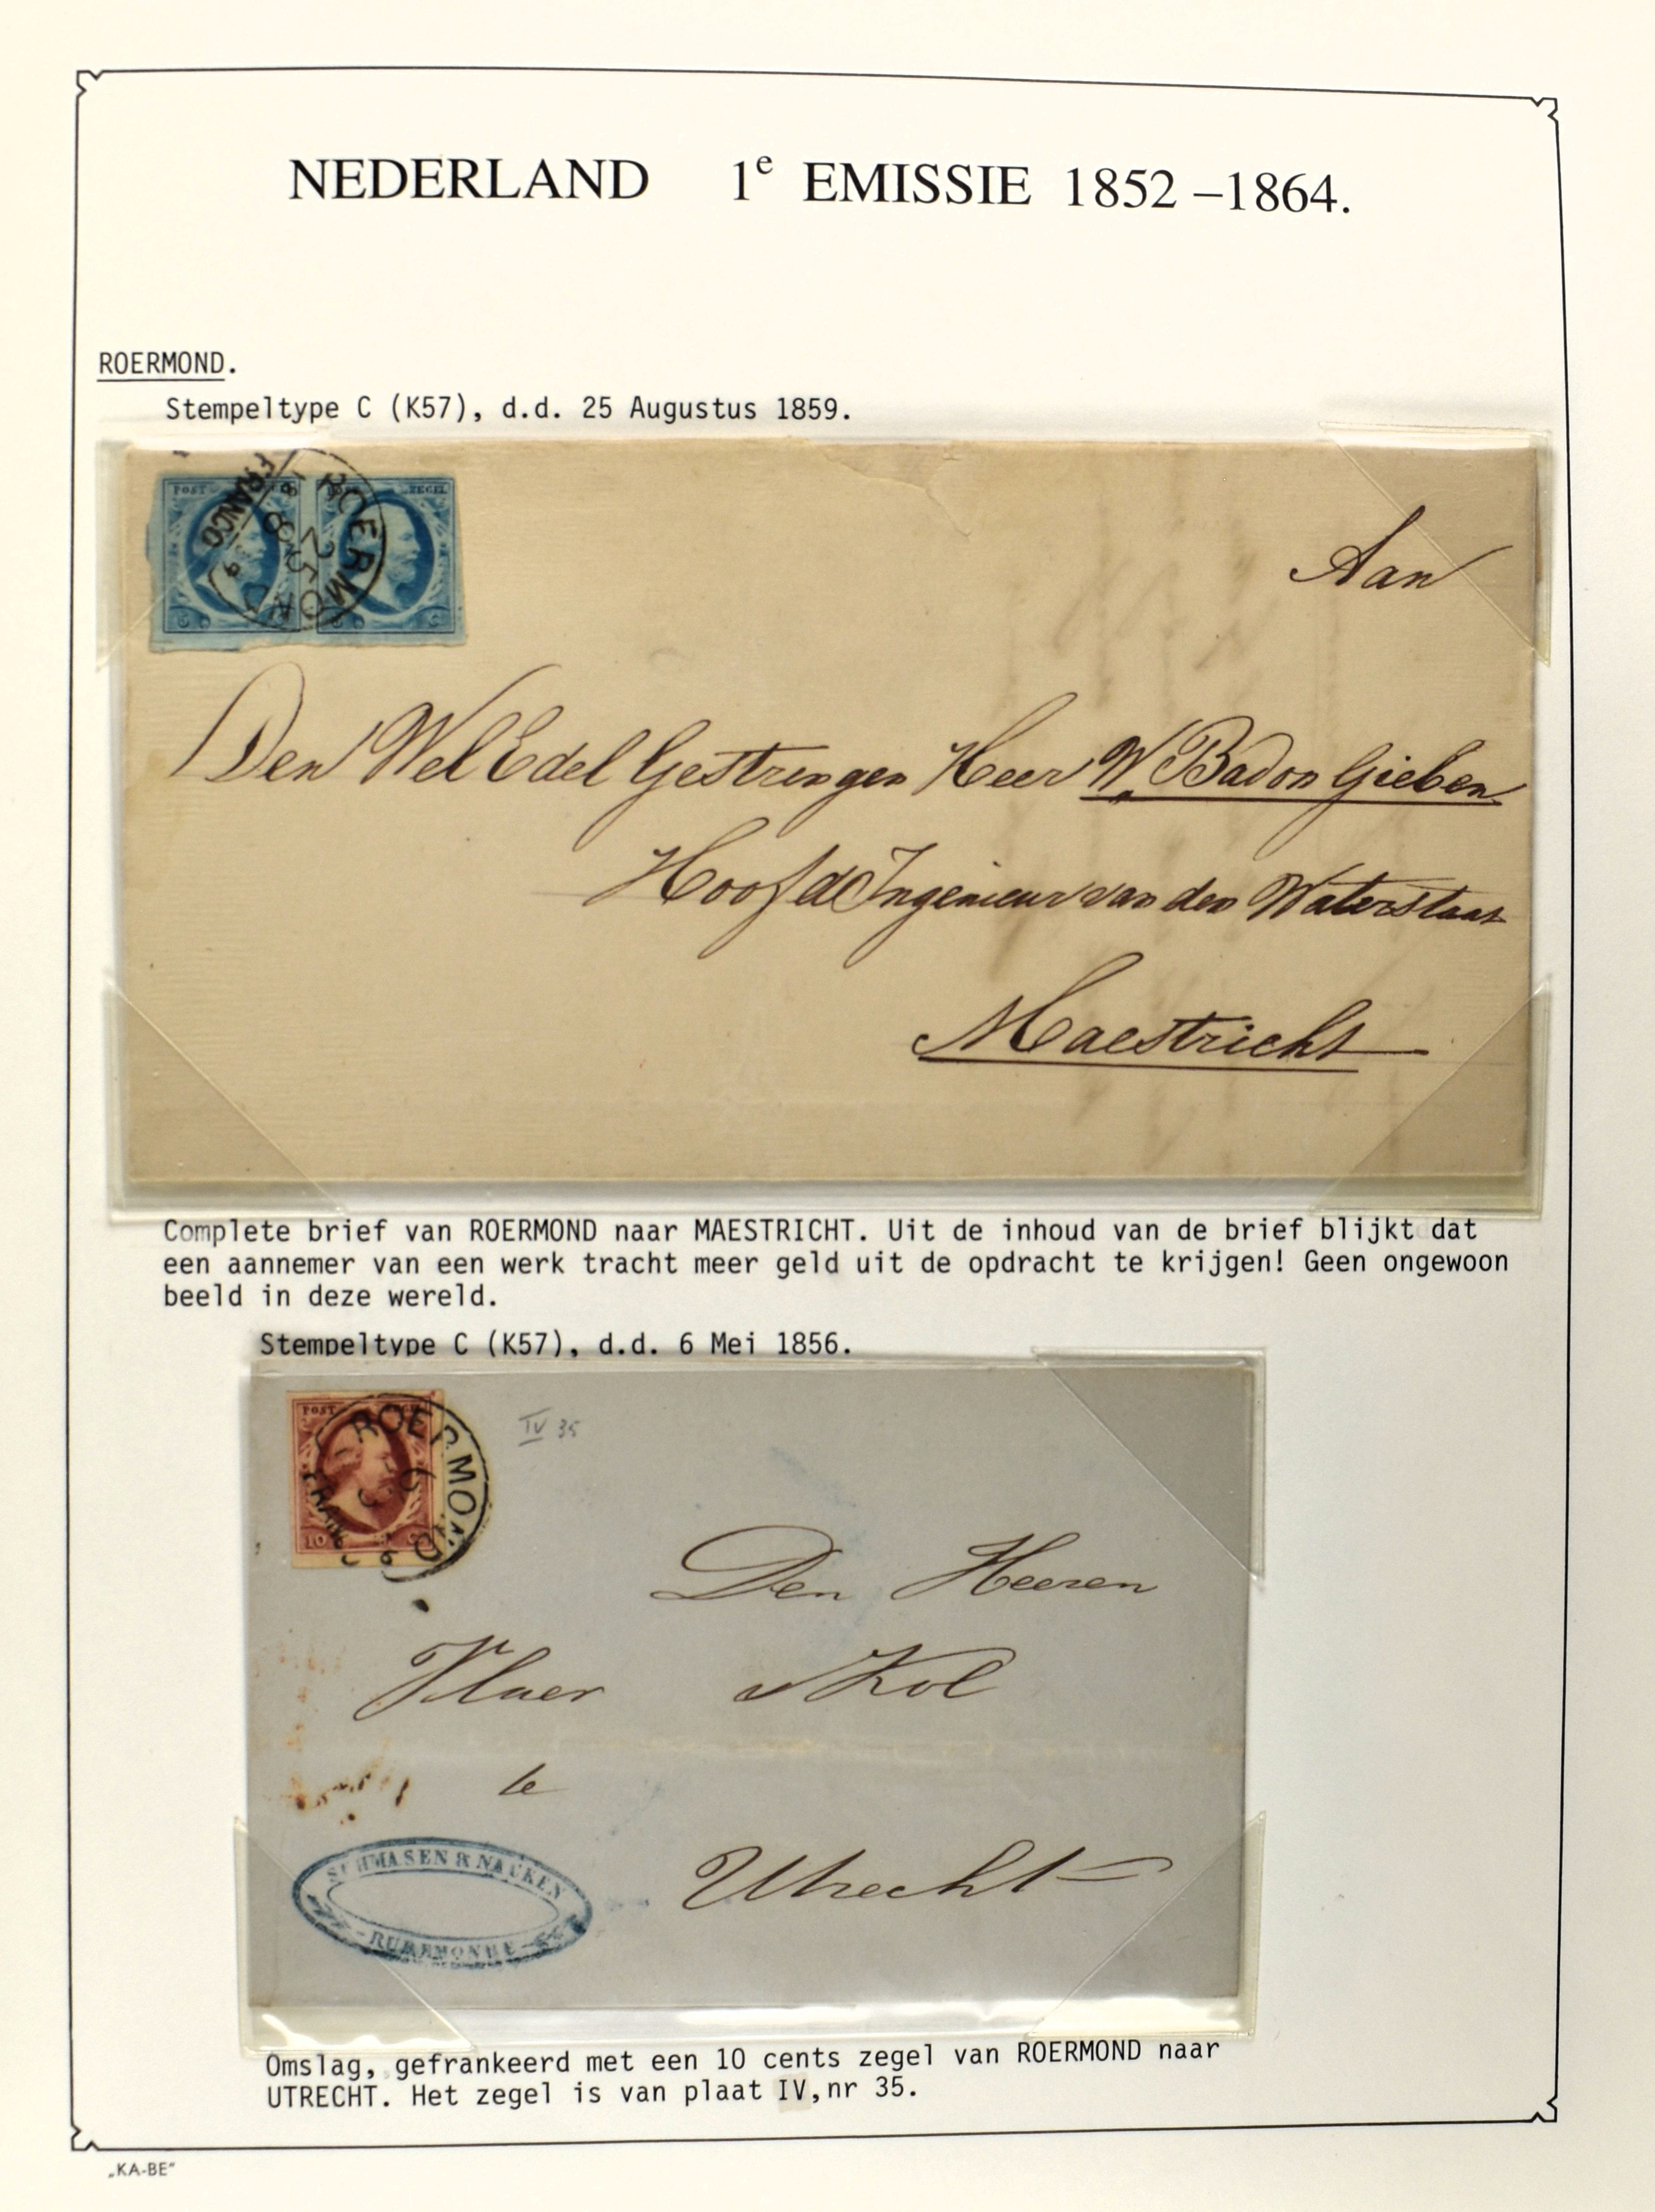 NEDERLAND 1e EMISSIE 1852 –1864.
ROERMOND.
Stempeltype C (K57), d.d. 25 Augustus 1859.
POST ZEGEL
ROERMOND
25
8
FRANCO
Aan
Den Wel Edel Gestrengen Heer W. Badon Gieben
Hoofd Ingenieur van den Waterstaat
Maestricht
Complete brief van ROERMOND naar MAESTRICHT. Uit de inhoud van de brief blijkt dat
een aannemer van een werk tracht meer geld uit de opdracht te krijgen! Geen ongewoon
beeld in deze wereld.
Stempeltype C (K57), d.d. 6 Mei 1856.
POST
ROERMOND
6
10 C
IV 35
Den Heeren
Vlaer & Kol
te
Utrecht
SCHMASEN & NAUKEN
RUREMONDE
Omslag, gefrankeerd met een 10 cents zegel van ROERMOND naar
UTRECHT. Het zegel is van plaat IV,nr 35.
„KA-BE"